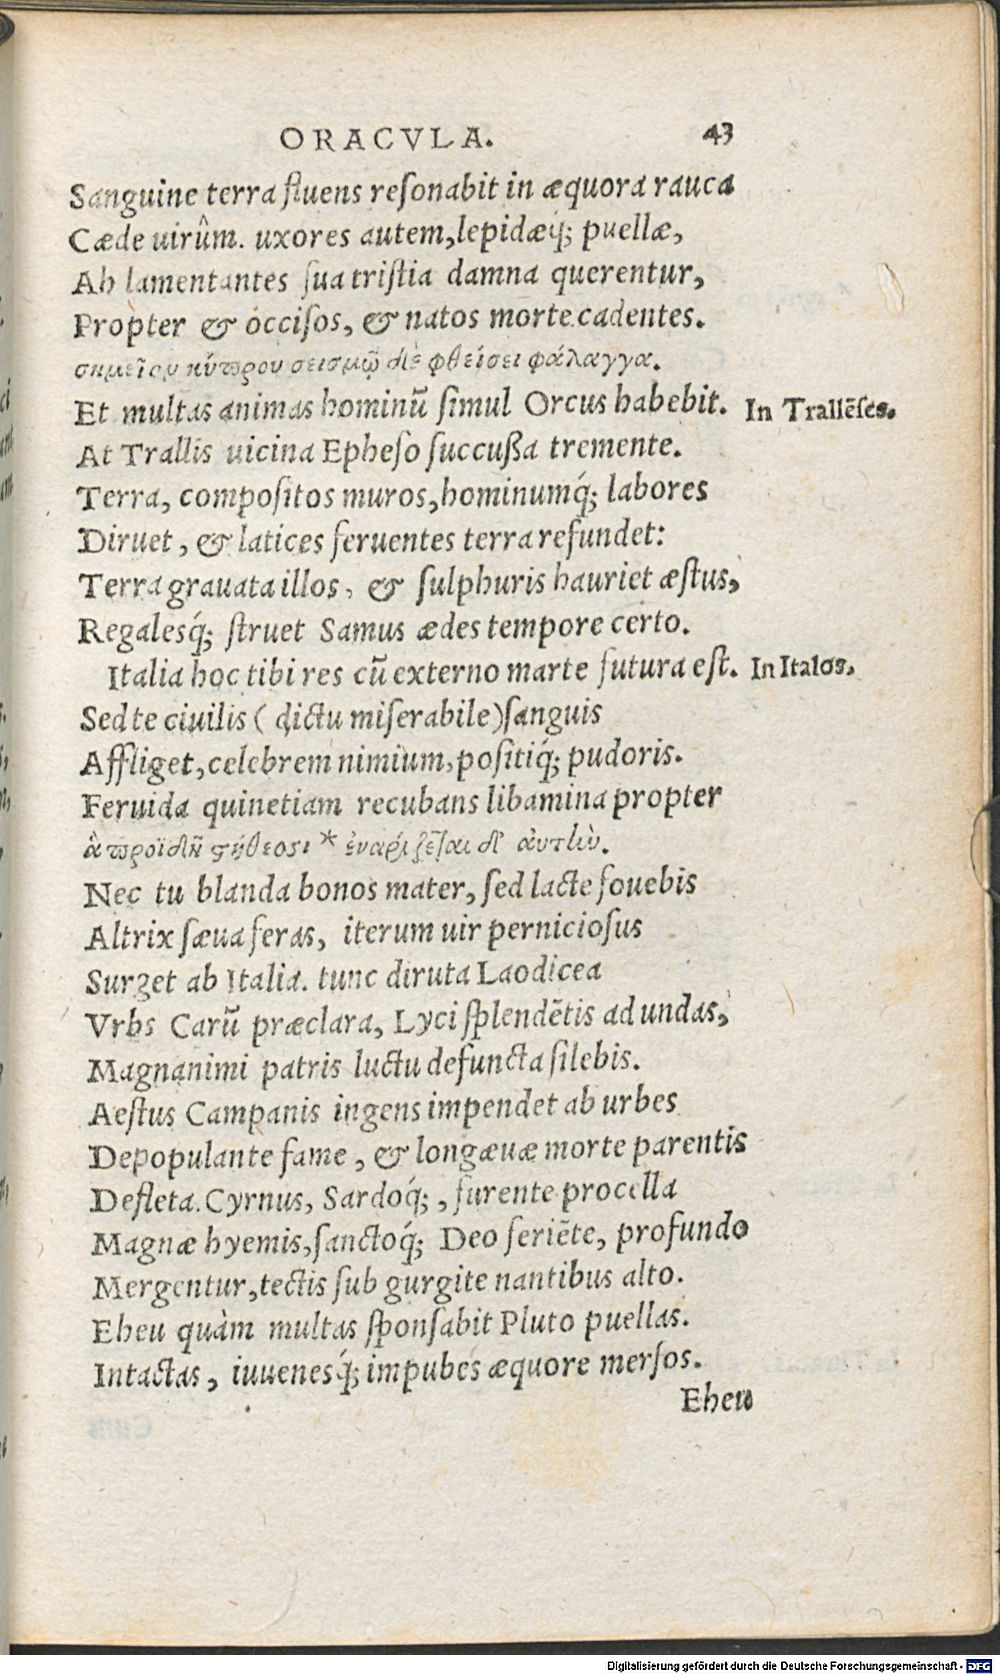 ORACVLA. 43
Sanguine terra fluens reſonabit in æquora rauca
Cæde uirûm. uxores autem, lepidæq́; puellæ,
Ah lamentantes ſua triſtia damna querentur,
Propter & occiſos, & natos morte cadentes.
σημεῖον κύπρου σεισμῷ δὲ φθείσει φάλαγγα.
Et multas animas hominū ſimul Orcus habebit. In Trallēſes.
At Trallis uicina Epheſo ſuccuſſa tremente.
Terra, compoſitos muros, hominumq́; labores
Diruet, & latices feruentes terra refundet:
Terra grauata illos, & ſulphuris hauriet æſtus,
Regalesq́; ſtruet Samus ædes tempore certo.
Italia hoc tibi res cū externo marte futura eſt. In Italos.
Sed te ciuilis (dictu miſerabile) ſanguis
Affliget, celebrem nimium, poſitiq́; pudoris.
Feruida quinetiam recubans libamina propter
ἀπροϊδῆ στήθεσι * ἐναρίζεται δ' αὐτήν.
Nec tu blanda bonos mater, ſed lacte fouebis
Altrix ſæua feras, iterum uir pernicioſus
Surget ab Italia. tunc diruta Laodicea
Vrbs Carū præclara, Lyci ſplendētis ad undas,
Magnanimi patris luctu defuncta ſilebis.
Aeſtus Campanis ingens impendet ab urbes
Depopulante fame, & longæuæ morte parentis
Defleta. Cyrnus, Sardoq́;, furente procella
Magnæ hyemis, ſanctoq́; Deo feriēte, profundo
Mergentur, tectis ſub gurgite nantibus alto.
Eheu quàm multas ſponſabit Pluto puellas.
Intactas, iuuenesq́; impubes æquore merſos.
Eheu
Digitalisierung gefördert durch die Deutsche Forschungsgemeinschaft - DFG